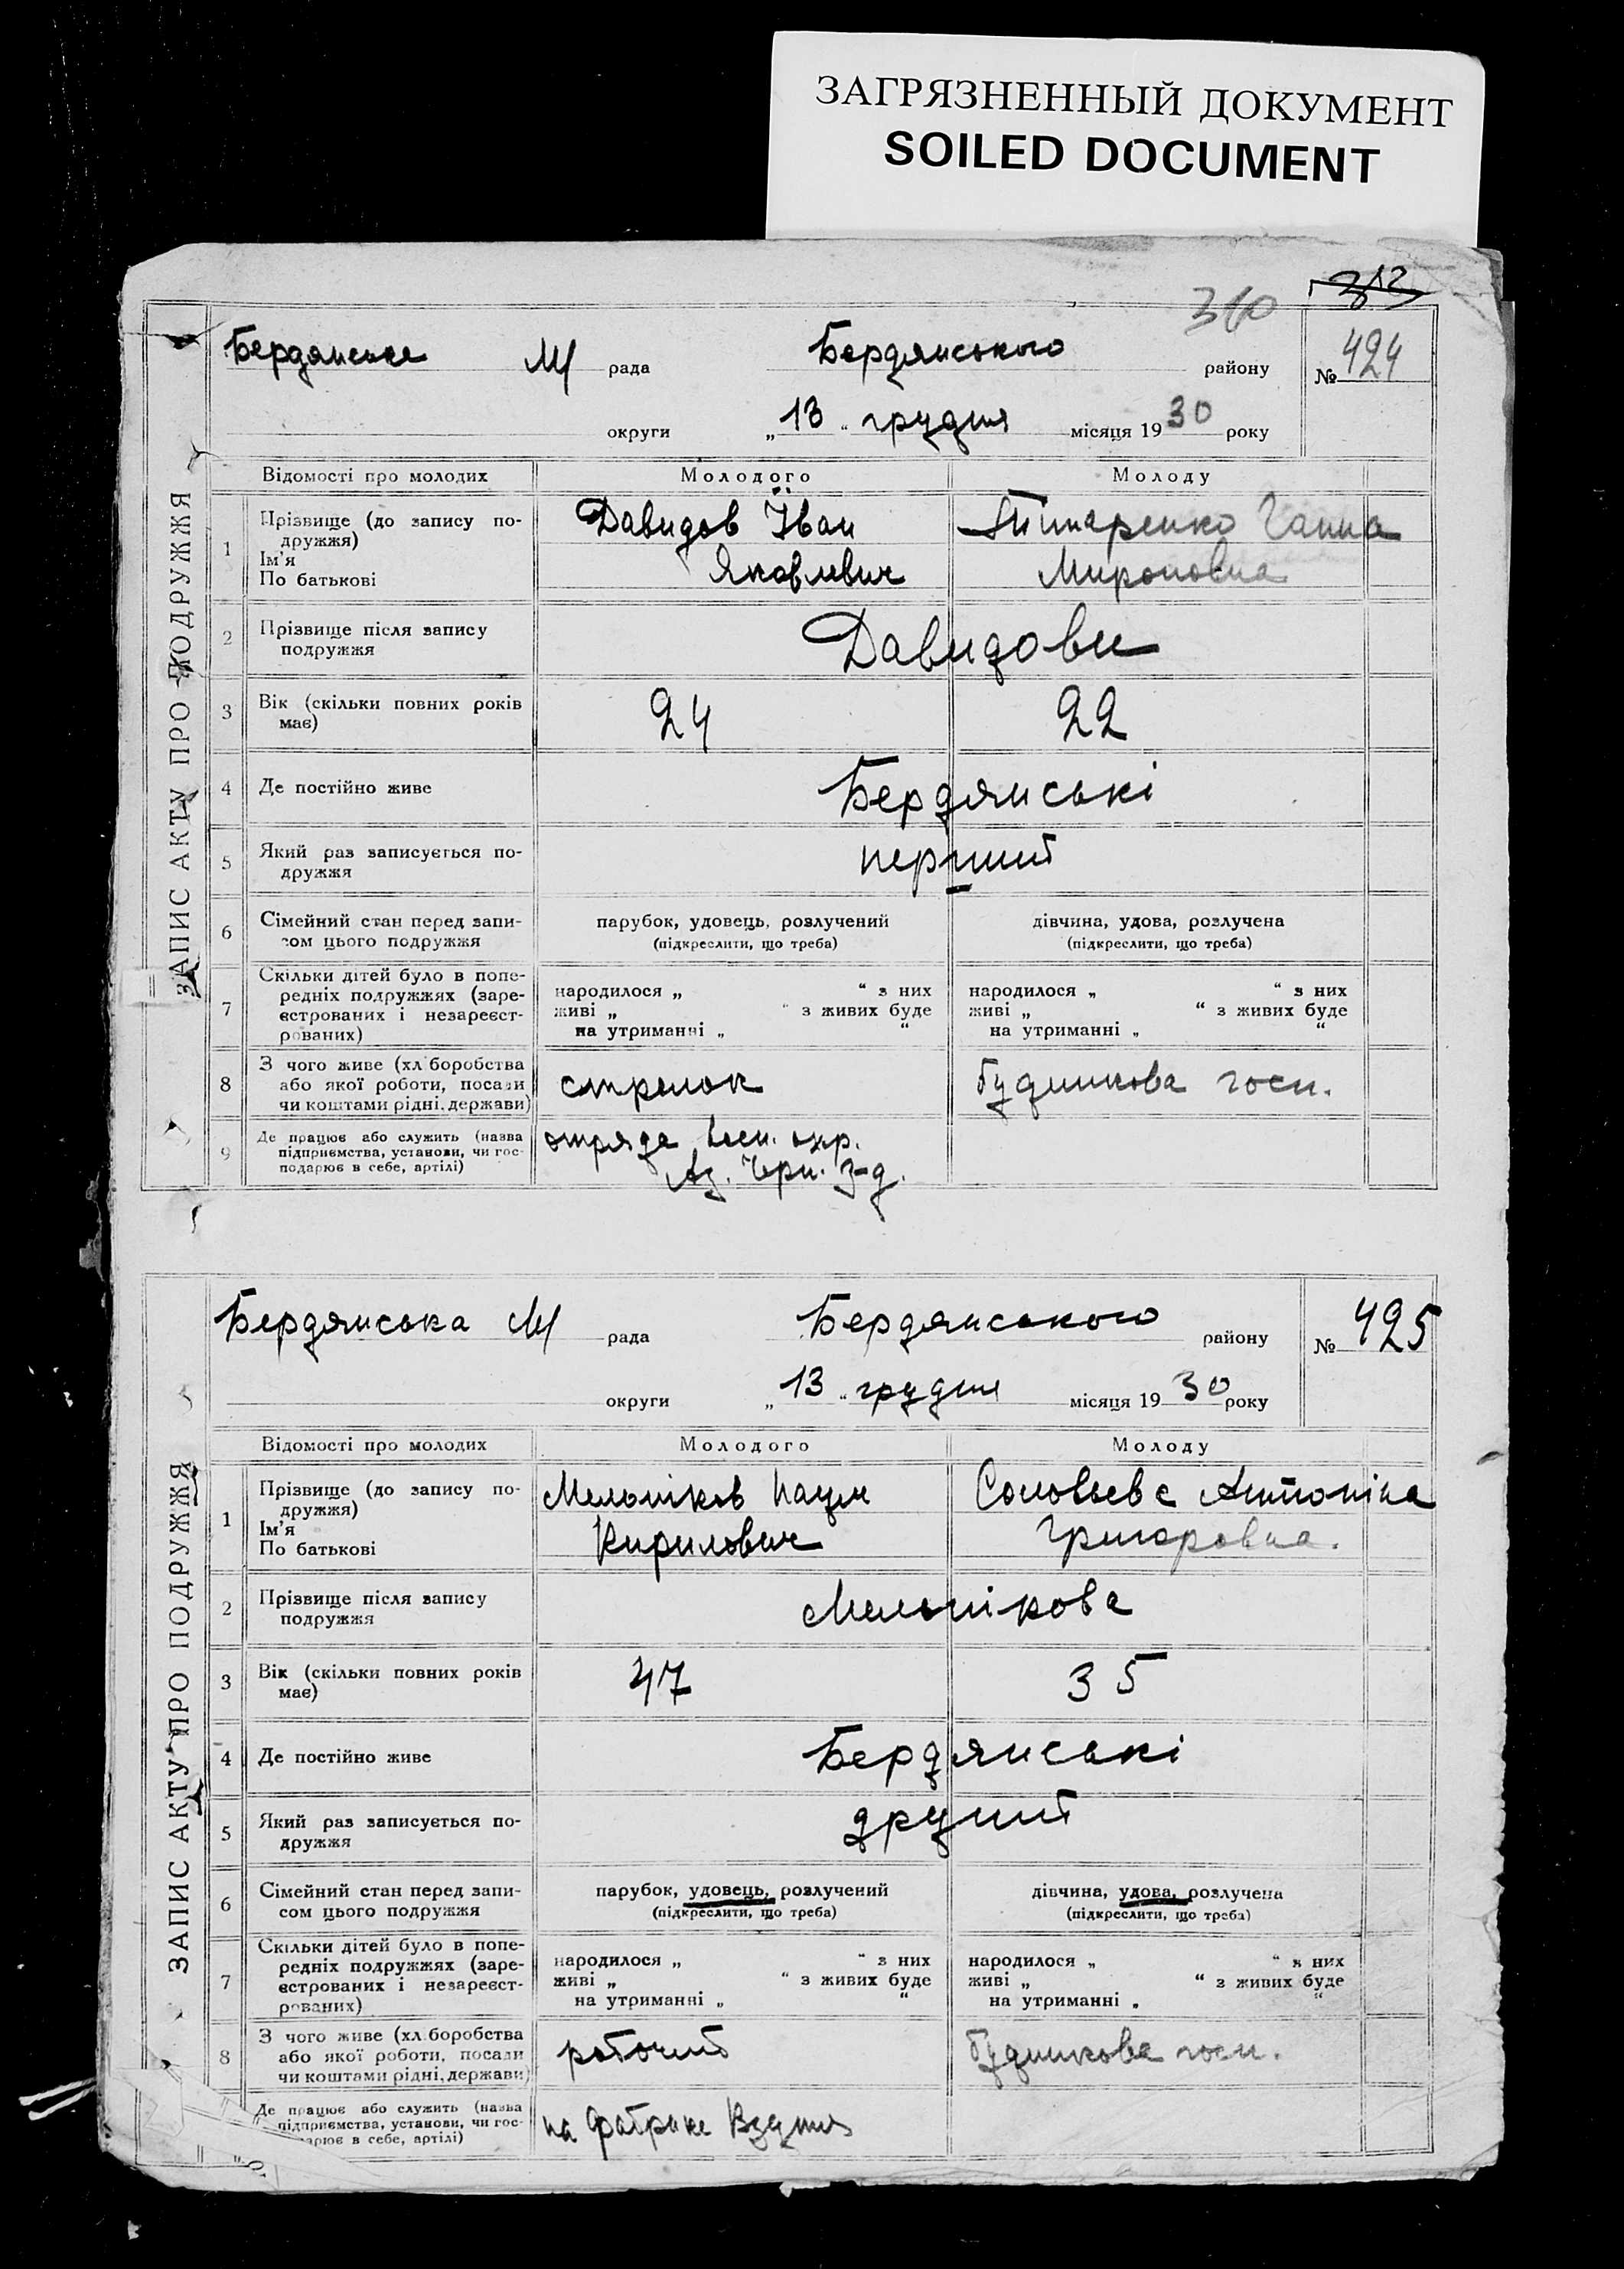 ЗАГРЯЗНЕННЫЙ ДОКУМЕНТ
SOILED DOCUMENT
313
310
ЗАПИС АКТУ ПРО ПОДРУЖЖЯ
Бердянська М/ рада Бердянського району № 424
округи „13“ грудня місяця 1930 року
Відомості про молодих Молодого Молоду
1 Прізвище (до запису по-
дружжя)
Ім'я
По батькові
Давидов Іван
Яковлевич
Ганна
Мироновна
2 Прізвище після запису
подружжя
Давидови
3 Вік (скільки повних років
має)
24 22
4 Де постійно живе Бердянські
5 Який раз записується по-
дружжя
перший
6 Сімейний стан перед запи-
сом цього подружжя
парубок, удовець, розлучений
(підкреслити, що треба)
дівчина, удова, розлучена
(підкреслити, що треба)
7 Скільки дітей було в попе-
редніх подружжях (заре-
єстрованих і незареєст-
рованих)
народилося „ “ з них
живі „ “ з живих буде
на утриманні „ “
народилося „ “ з них
живі „ “ з живих буде
на утриманні „ “
8 З чого живе (хліборобства
або якої роботи, посади
чи коштами рідні, держави)
стрелок
будинкова госп.
9 Де працює або служить (назва
підприємства, установи, чи гос-
подарює в себе, артілі)
отряда воен. охр.
Аз. Чорн. з-д.
ЗАПИС АКТУ ПРО ПОДРУЖЖЯ
Бердянська М/ рада Бердянського району № 425
округи „13“ грудня місяця 1930 року
Відомості про молодих Молодого Молоду
1 Прізвище (до запису по-
дружжя)
Ім'я
По батькові
Мельніков Наум
Кирилович
Соловьева Антоніна
Григоровна.
2 Прізвище після запису
подружжя
Мельнікова
3 Вік (скільки повних років
має)
47 35
4 Де постійно живе Бердянські
5 Який раз записується по-
дружжя
другий
6 Сімейний стан перед запи-
сом цього подружжя
парубок, удовець, розлучений
(підкреслити, що треба)
дівчина, удова, розлучена
(підкреслити, що треба)
7 Скільки дітей було в попе-
редніх подружжях (заре-
єстрованих і незареєст-
рованих)
народилося „ “ з них
живі „ “ з живих буде
на утриманні „ “
народилося „ “ з них
живі „ “ з живих буде
на утриманні „ “
8 З чого живе (хліборобства
або якої роботи, посади
чи коштами рідні, держави)
робочий
будинкова госп.
Де працює або служить (назва
підприємства, установи, чи гос-
подарює в себе, артілі)
на фабрике